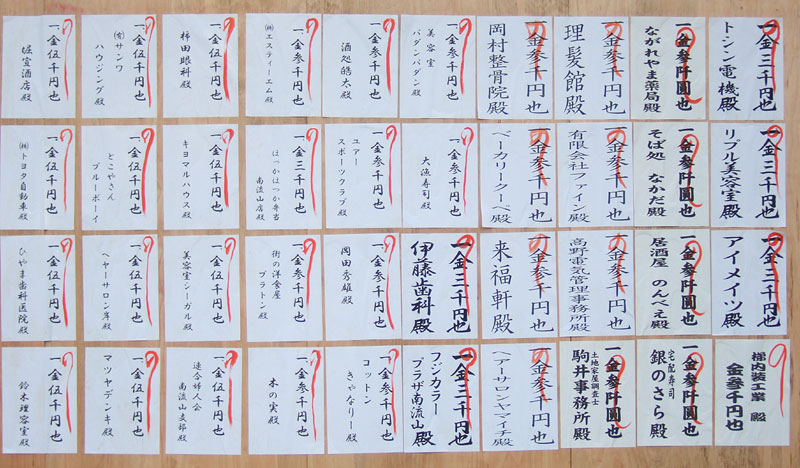 一金三千円也
トシン電機殿
一金参阡圓也
ながれやま薬局殿
一金参千円也
理髪館殿
一金参千円也
岡村整骨院殿
一金参千円也
美容室
パダンパダン殿
一金参千円也
酒処皓太殿
一金参千円也
㈱エスティーエム殿
一金伍千円也
柿田眼科殿
一金伍千円也
㈲サンワ
ハウジング殿
一金伍千円也
堀宣酒店殿
一金三千円也
リップル美容室殿
一金参阡圓也
そば処 なかだ殿
一金参千円也
有限会社ファイン殿
一金参千円也
ベーカリークーベ殿
一金参千円也
大漁寿司殿
一金参千円也
ユアー
スポーツクラブ殿
一金三千円也
ほっかほっか弁当
南流山店殿
一金伍千円也
キヨマルハウス殿
一金伍千円也
とこやさん
ブルーボーイ
一金伍千円也
㈱トヨタ自動車殿
一金三千円也
アイメイツ殿
一金参阡圓也
居酒屋 のんべえ殿
一金参千円也
高野電気管理事務所殿
一金参千円也
来福軒殿
一金三千円也
伊藤歯科殿
一金参千円也
岡田秀雄殿
一金参千円也
街の洋食屋
プラトン殿
一金伍千円也
美容室シーグル殿
一金伍千円也
ヘヤーサロン岸殿
一金伍千円也
ひやま歯科医院殿
金参千円也
梯内装工業 殿
一金参阡圓也
宅配寿司
銀のさら殿
一金参阡圓也
土地家屋調査士
駒井事務所殿
一金参千円也
ヘアーサロンヤマイチ殿
一金三千円也
フジカラー
プラザ南流山殿
一金参千円也
コットン
きゃなりー殿
一金参千円也
木の実殿
一金伍千円也
連合婦人会
南流山支部殿
一金伍千円也
マツヤデンキ殿
一金伍千円也
鈴木理容室殿